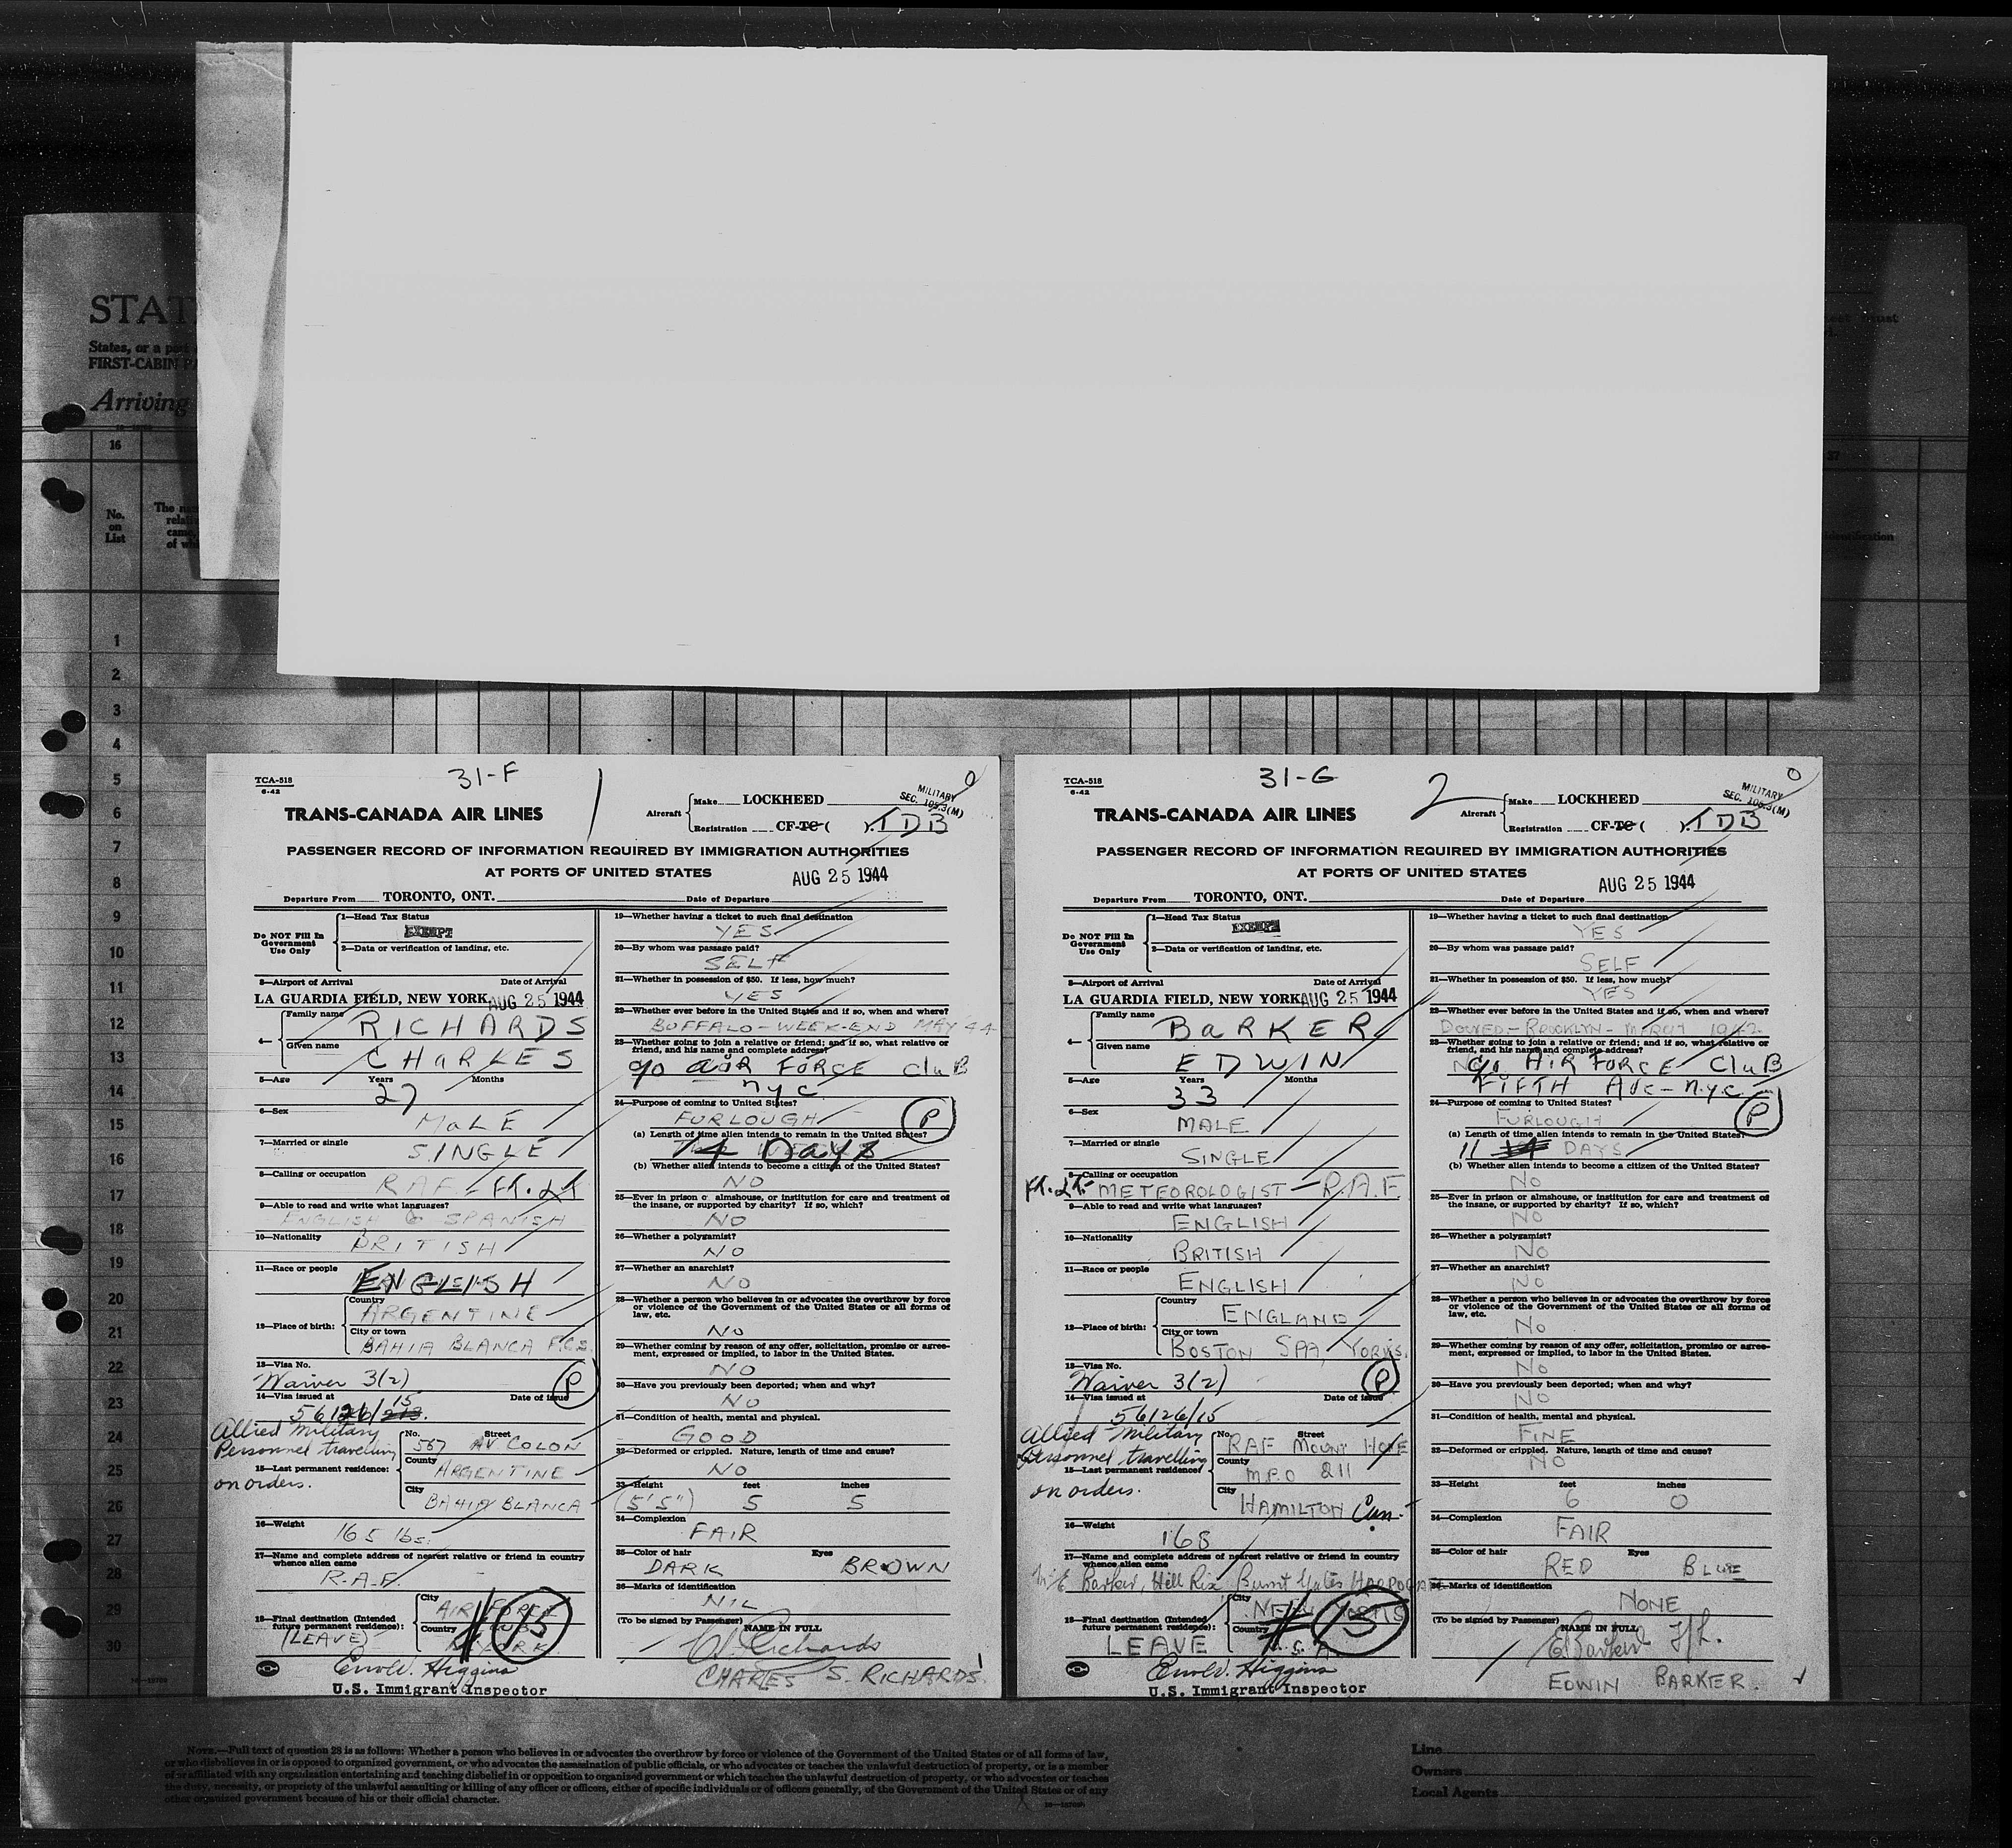 STAT
States, or a p
FIRST-CABIN P
Arriving
16
No.
on
List
37
identification
1
2
3
4
5
6
7
8
9
10
11
12
13
14
15
16
17
18
19
20
21
22
23
24
25
26
27
28
29
30
TCA-518
6-42
31-F
1
0
TRANS-CANADA AIR LINES
Aircraft
Make LOCKHEED
Registration CF-TC ( ) TDB
MILITARY
SEC. 105.3(M)
PASSENGER RECORD OF INFORMATION REQUIRED BY IMMIGRATION AUTHORITIES
AT PORTS OF UNITED STATES
AUG 25 1944
Departure From TORONTO, ONT. Date of Departure
Do NOT Fill In
Government
Use Only
1—Head Tax Status
EXEMPT
2—Data or verification of landing, etc.
3—Airport of Arrival Date of Arrival
LA GUARDIA FIELD, NEW YORK, AUG 25 1944
4—
Family name RICHARDS
Given name CHARLES
5—Age Years Months
27
6—Sex
MALE
7—Married or single
SINGLE
8—Calling or occupation
RAF - Ft. Lt
9—Able to read and write what languages?
ENGLISH & SPANISH
10—Nationality
BRITISH
11—Race or people
ENGLISH
12—Place of birth:
Country
ARGENTINE
City or town
BAHIA BLANCA F.C.S.
13—Visa No.
Waiver 3(2)
P
14—Visa issued at Date of issue
56126/213. 15
Allied Military
Personnel travelling
on orders.
15—Last permanent residence:
No. Street
567 AV COLON
County
ARGENTINE
City
BAHIA BLANCA
16—Weight
165 lbs.
17—Name and complete address of nearest relative or friend in country
whence alien came
R.A.F.
18—Final destination (Intended
future permanent residence):
(LEAVE)
City
AIR FORCE
Country CLUB
N. YORK
# 15
Errol V. Higgins
U.S. Immigrant Inspector
19—Whether having a ticket to such final destination
YES
20—By whom was passage paid?
SELF
21—Whether in possession of $50. If less, how much?
YES
22—Whether ever before in the United States and if so, when and where?
BUFFALO - WEEK-END MAY '44
23—Whether going to join a relative or friend; and if so, what relative or
friend, and his name and complete address?
c/o AIR FORCE CluB
nyc
24—Purpose of coming to United States?
FURLOUGH
P
(a) Length of time alien intends to remain in the United States?
14 Days
(b) Whether alien intends to become a citizen of the United States?
NO
25—Ever in prison or almshouse, or institution for care and treatment of
the insane, or supported by charity? If so, which?
NO
26—Whether a polygamist?
NO
27—Whether an anarchist?
NO
28—Whether a person who believes in or advocates the overthrow by force
or violence of the Government of the United States or all forms of
law, etc.
NO
29—Whether coming by reason of any offer, solicitation, promise or agree-
ment, expressed or implied, to labor in the United States.
NO
30—Have you previously been deported; when and why?
NO
31—Condition of health, mental and physical.
GOOD
32—Deformed or crippled. Nature, length of time and cause?
NO
33—Height feet inches
(5'5") 5 5
34—Complexion
FAIR
35—Color of hair Eyes
DARK BROWN
36—Marks of identification
NIL
(To be signed by Passenger) NAME IN FULL
C.S. Richards
CHARLES S. RICHARDS
TCA-518
6-42
31-G
2
0
TRANS-CANADA AIR LINES
Aircraft
Make LOCKHEED
Registration CF-TC ( ) TDB
MILITARY
SEC. 105.3(M)
PASSENGER RECORD OF INFORMATION REQUIRED BY IMMIGRATION AUTHORITIES
AT PORTS OF UNITED STATES
AUG 25 1944
Departure From TORONTO, ONT. Date of Departure
Do NOT Fill In
Government
Use Only
1—Head Tax Status
EXEMPT
2—Data or verification of landing, etc.
3—Airport of Arrival Date of Arrival
LA GUARDIA FIELD, NEW YORK AUG 25 1944
4—
Family name BARKER
Given name EDWIN
5—Age Years Months
33
6—Sex
MALE
7—Married or single
SINGLE
8—Calling or occupation
Ft. Lt. METEOROLOGIST - R.A.F.
9—Able to read and write what languages?
ENGLISH
10—Nationality
BRITISH
11—Race or people
ENGLISH
12—Place of birth:
Country
ENGLAND
City or town
BOSTON SPA, YORKS.
13—Visa No.
Waiver 3(2)
P
14—Visa issued at Date of issue
56126/15
Allied Military
Personnel travelling
on orders.
15—Last permanent residence:
No. Street
RAF MOUNT HOPE
County
M.P.O 211
City
HAMILTON Can.
16—Weight
168
17—Name and complete address of nearest relative or friend in country
whence alien came
Barker, Hill Rix Burnt Yates HARROGATE
18—Final destination (Intended
future permanent residence):
LEAVE
City
NEW YORK
Country
U.S.A.
# 15
Errol V. Higgins
U.S. Immigrant Inspector
19—Whether having a ticket to such final destination
YES
20—By whom was passage paid?
SELF
21—Whether in possession of $50. If less, how much?
YES
22—Whether ever before in the United States and if so, when and where?
BROOKLYN - MARCH 1942
23—Whether going to join a relative or friend; and if so, what relative or
friend, and his name and complete address?
c/o AIR FORCE CluB
FIFTH Ave - n.y.c.
24—Purpose of coming to United States?
FURLOUGH
P
(a) Length of time alien intends to remain in the United States?
11 14 DAYS
(b) Whether alien intends to become a citizen of the United States?
NO
25—Ever in prison or almshouse, or institution for care and treatment of
the insane, or supported by charity? If so, which?
NO
26—Whether a polygamist?
NO
27—Whether an anarchist?
NO
28—Whether a person who believes in or advocates the overthrow by force
or violence of the Government of the United States or all forms of
law, etc.
NO
29—Whether coming by reason of any offer, solicitation, promise or agree-
ment, expressed or implied, to labor in the United States.
NO
30—Have you previously been deported; when and why?
NO
31—Condition of health, mental and physical.
FINE
32—Deformed or crippled. Nature, length of time and cause?
NO
33—Height feet inches
6 0
34—Complexion
FAIR
35—Color of hair Eyes
RED BLUE
36—Marks of identification
NONE
(To be signed by Passenger) NAME IN FULL
E Barker F/L.
EDWIN BARKER.
NOTE.—Full text of question 28 is as follows: Whether a person who believes in or advocates the overthrow by force or violence of the Government of the United States or of all forms of law,
or who disbelieves in or is opposed to organized government, or who advocates the assassination of public officials, or who advocates or teaches the unlawful destruction of property, or is a member
of or affiliated with any organization entertaining and teaching disbelief in or opposition to organized government or which teaches the unlawful destruction of property, or who advocates or teaches
the duty, necessity, or propriety of the unlawful assaulting or killing of any officer or officers, either of specific individuals or of officers generally, of the Government of the United States or of any
other organized government because of his or their official character.
Line
Owners
Local Agents